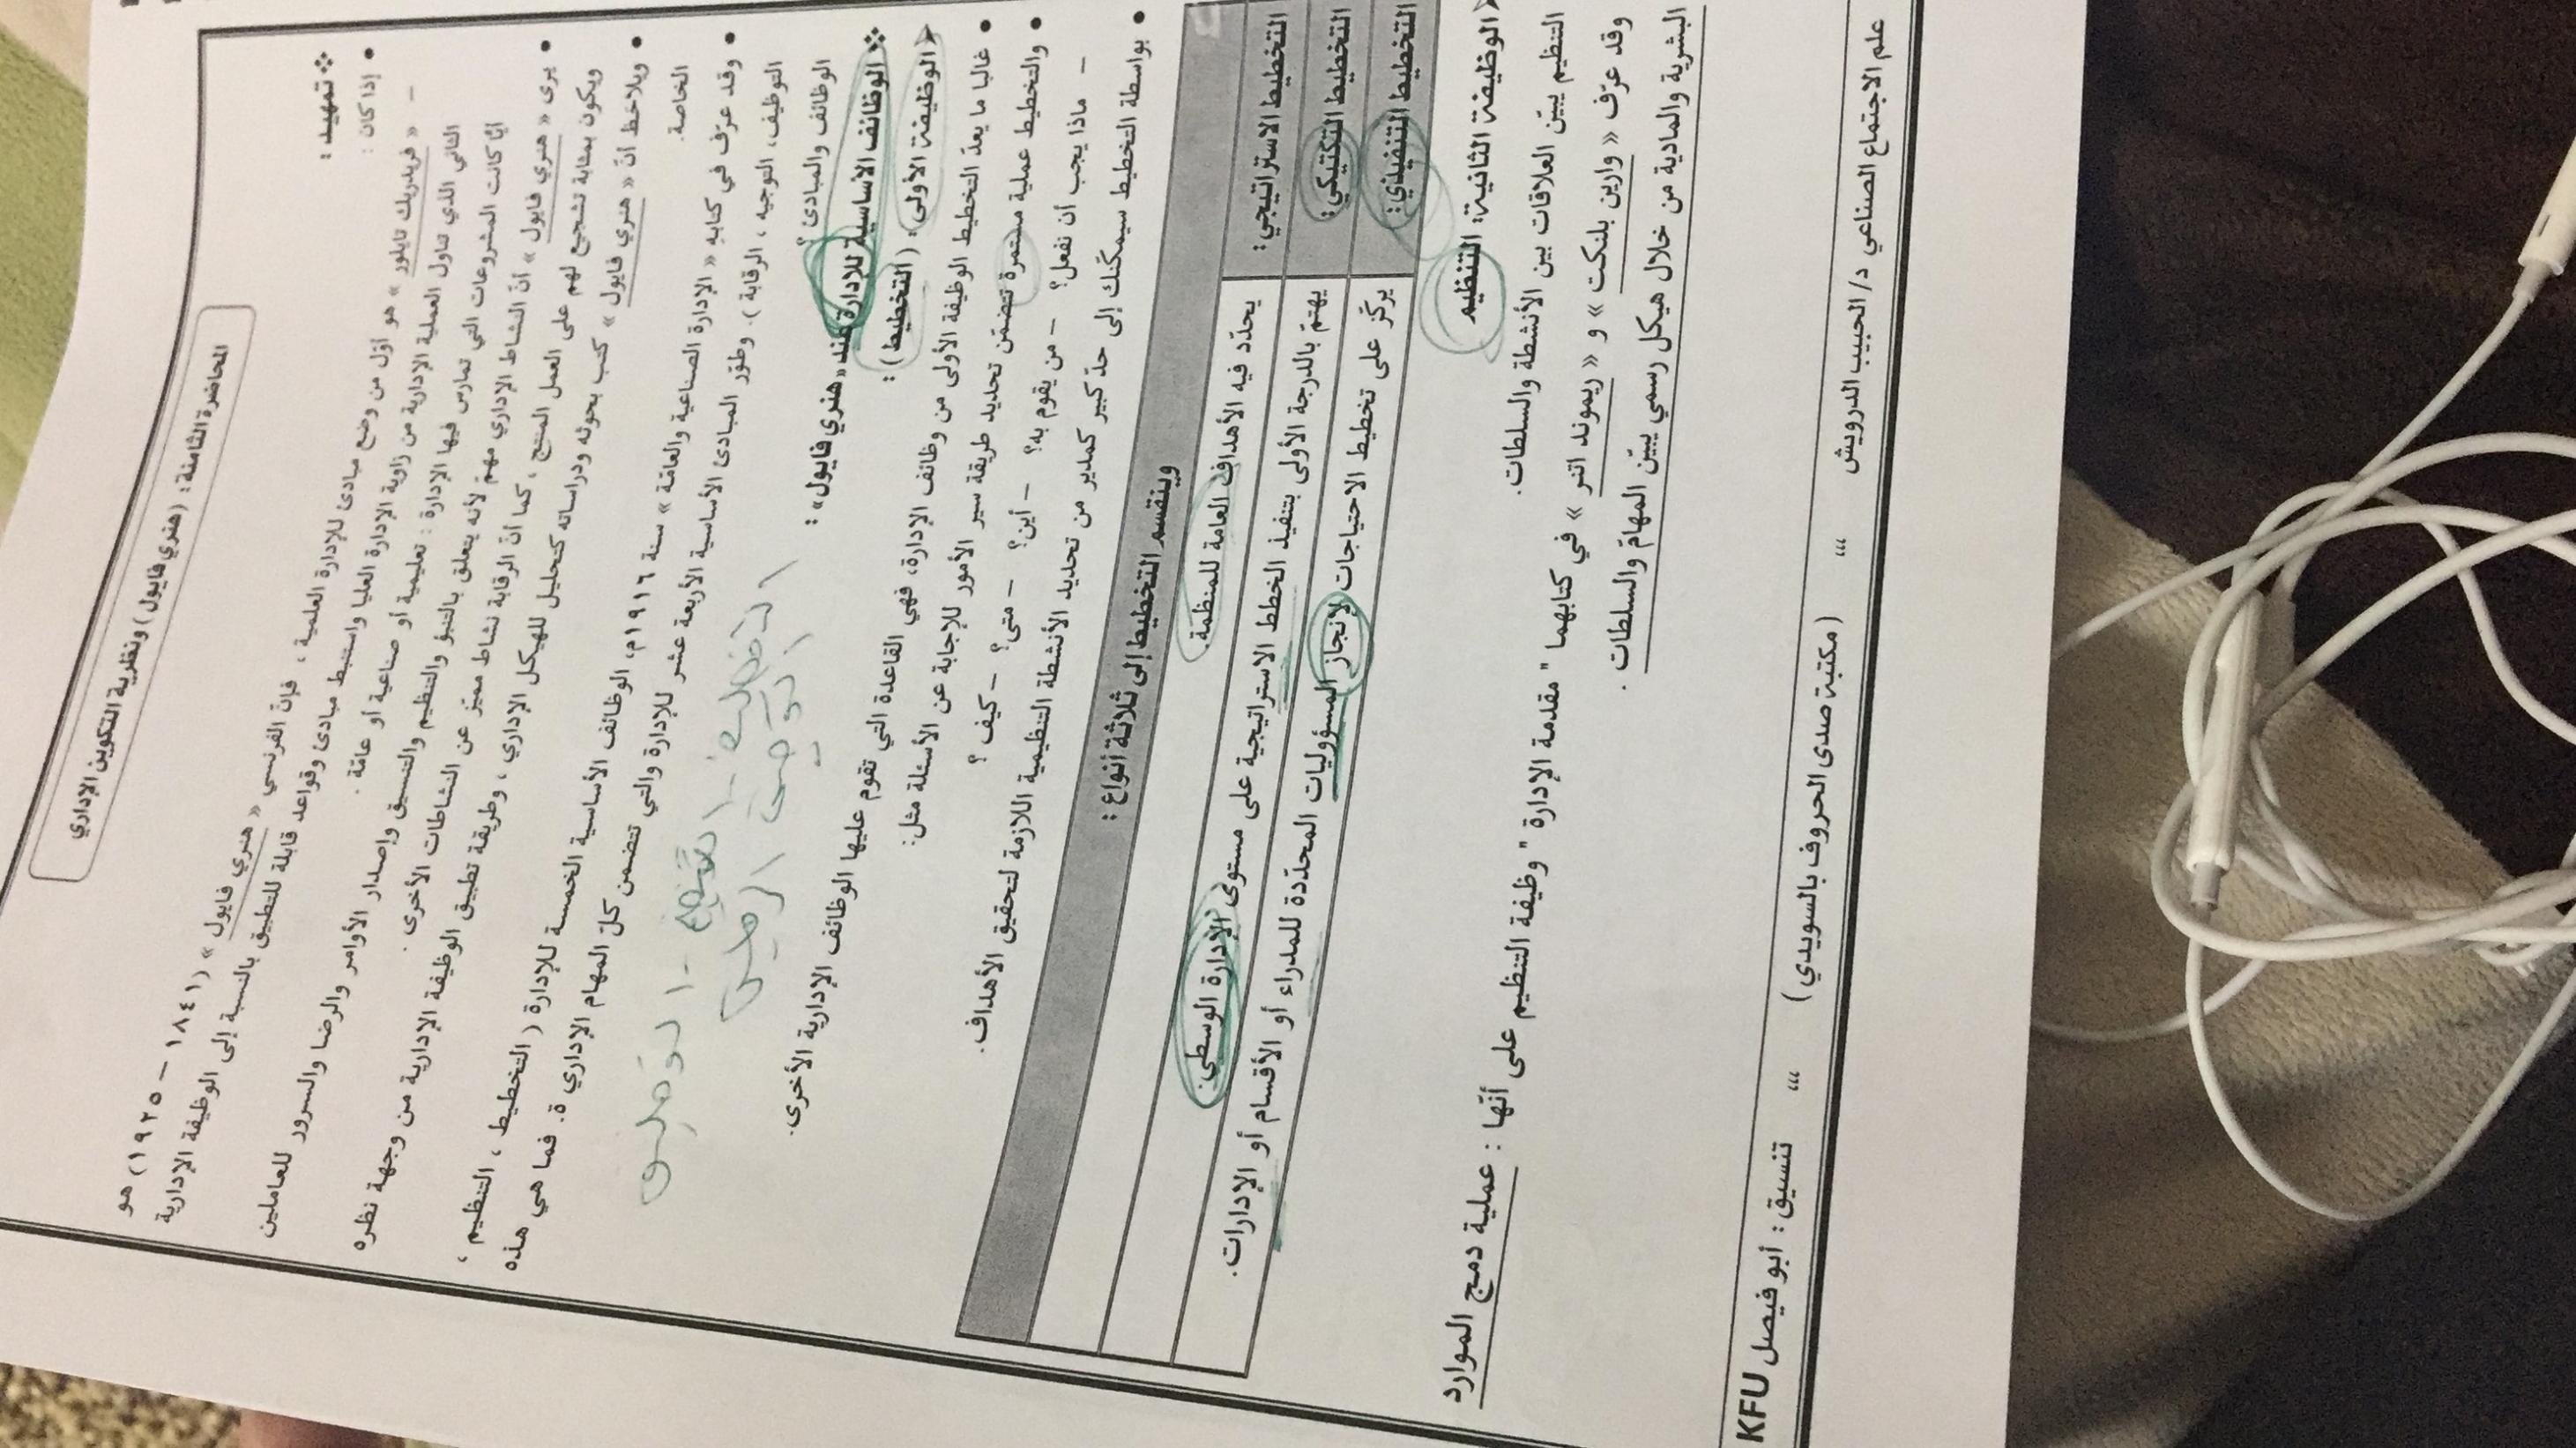 المحاضرة الثامنة : (هنري فايول) ونظرية التكوين الإداري
❖ تمهيد :
• إذا كان :
– « فريدريك تايلور » هو أوّل من وضع مبادئ للإدارة العلمية ، فإنّ الفرنسي « هنري فايول » (١٨٤١ – ١٩٢٥) هو
الثاني الذي تناول العملية الإدارية من زاوية الإدارة العليا واستنبط مبادئ وقواعد قابلة للتطبيق بالنسبة إلى الوظيفة الإدارية
أيّا كانت المشروعات التي تمارس فيها الإدارة : تعليمية أو صناعية أو عامّة .
• يرى « هنري فايول » أنّ النشاط الإداري مهمّ لأنه يتعلق بالتنبؤ والتنظيم والتنسيق وإصدار الأوامر والرضا والسرور للعاملين
ويكون بمثابة تشجيع لهم على العمل المنتج ، كما أنّ الرقابة نشاط مميّز عن النشاطات الأخرى .
• ويلاحظ أنّ « هنري فايول » كتب بحوثه ودراساته كتحليل للهيكل الإداري ، وطريقة تطبيق الوظيفة الإدارية من وجهة نظره
الخاصة .
• وقد عرّف في كتابه « الإدارة الصناعية والعامّة » سنة ١٩١٦م، الوظائف الأساسية الخمسة للإدارة ( التخطيط ، التنظيم ،
التوظيف، التوجيه ، الرقابة ). وطوّر المبادئ الأساسية الأربعة عشر للإدارة والتي تتضمن كلّ المهام الإداري ة. فما هي هذه
الوظائف والمبادئ ؟
❖ الوظائف الأساسية للإدارة عند «هنري فايول» :
➢ (الوظيفة الأولى) : (التخطيط) :
• غالبا ما يعدّ التخطيط الوظيفة الأولى من وظائف الإدارة، فهي القاعدة التي تقوم عليها الوظائف الإدارية الأخرى.
• والتخطيط عملية مستمرة تتضمّن تحديد طريقة سير الأمور للإجابة عن الأسئلة مثل:
– ماذا يجب أن نفعل؟ – من يقوم به؟ – أين؟ – متى؟ – كيف ؟
• بواسطة التخطيط سيمكّنك إلى حدّ كبير كمدير من تحديد الأنشطة التنظيمية اللازمة لتحقيق الأهداف.
وينقسم التخطيط إلى ثلاثة أنواع :
التخطيط الاستراتيجي: يحدّد فيه الأهداف العامة للمنظمة.
التخطيط التكتيكي: يهتمّ بالدرجة الأولى بتنفيذ الخطط الاستراتيجية على مستوى الإدارة الوسطى.
التخطيط التنفيذي: يركّز على تخطيط الاحتياجات لإنجاز المسؤوليات المحدّدة للمدراء أو الأقسام أو الإدارات.
➢ الوظيفة الثانية: التنظيم
التنظيم يبيّن العلاقات بين الأنشطة والسلطات.
وقد عرّف « وارين بلنكت » و « ريموند اتنر » في كتابهما " مقدمة الإدارة " وظيفة التنظيم على أنّها : عملية دمج الموارد
البشرية والمادية من خلال هيكل رسمي يبيّن المهامّ والسلطات .
علم الاجتماع الصناعي د/ الحبيب الدرويش ،،، (مكتبة صدى الحروف بالسويدي) ،،، تنسيق : أبو فيصل KFU